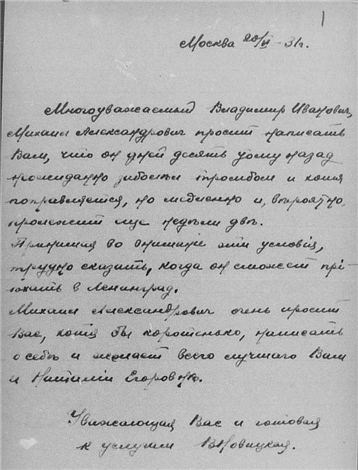 1
Москва 20/II - 31 г.
Многоуважаемый Владимир Иванович,
Михаил Александрович просит написать
Вам, что он дней десять тому назад
неожиданно заболел тромбом и хотя
поправляется, но медленно и, вероятно,
пролежит еще недели две.
Принимая во внимание эти условия,
трудно сказать, когда он сможет прi-
ехать в Ленинград.
Михаил Александрович очень просит
Вас, хотя бы коротенько, написать
о себе и желает всего лучшего Вам
и Наталии Егоровне.
Уважающая Вас и готовая
к услугам В. Новицкая.